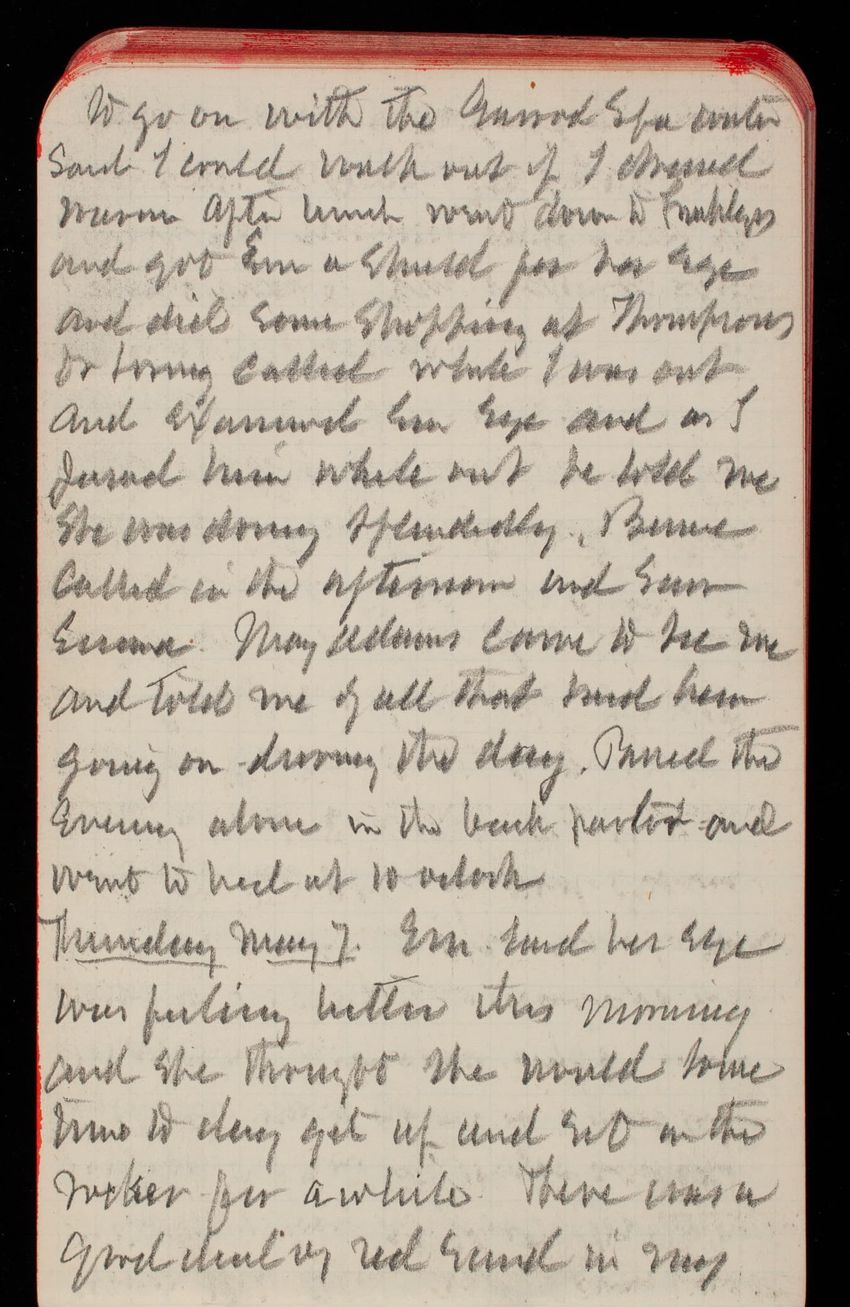 to go on with the Garrod Spa water
Said I could walk out if I dressed
warm After lunch went down to
and got Em a Shield for her Eye
and did Some Shopping at Thompsons
Dr Loring Called while I was out
And Examined Em Eye and as I
found him while out he told me
She was doing Splendidly. Bernie
Called in the afternoon and Saw
Emma. May Adams Came to see me
and told me of all that had been
going on during the day. Passed the
Evening alone in the back parlor and
went to bed at 10 oclock
Thursday May 7. Em Said her Eye
was feeling better this morning
and She thought She would some
time to day get up and Sit in the
rocker for awhile There was a
good deal of red Sand in my